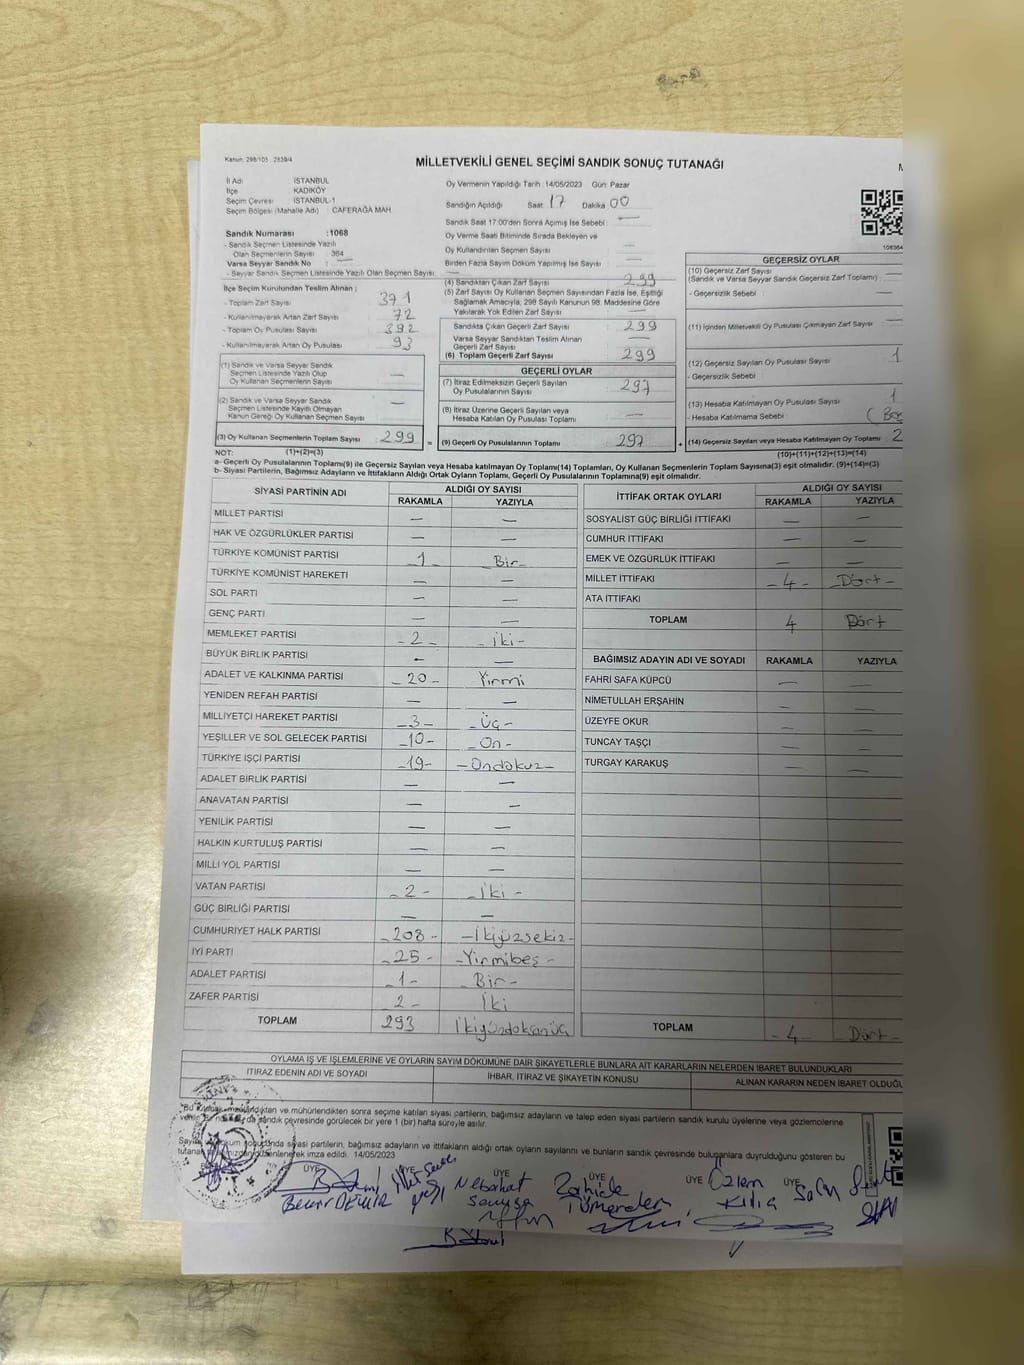 Kanun: 298/105 : 2839/4
MİLLETVEKİLİ GENEL SEÇİMİ SANDIK SONUÇ TUTANAĞI
İl Adı : İSTANBUL
İlçe : KADIKÖY
Seçim Çevresi : İSTANBUL-1
Seçim Bölgesi (Mahalle Adı) : CAFERAĞA MAH.
Sandık Numarası :1068
- Sandık Seçmen Listesinde Yazılı
Olan Seçmenlerin Sayısı : 364
Varsa Seyyar Sandık No : —
- Seyyar Sandık Seçmen Listesinde Yazılı Olan Seçmen Sayısı: —
İlçe Seçim Kurulundan Teslim Alınan ;
- Toplam Zarf Sayısı : 371
- Kullanılmayarak Artan Zarf Sayısı : 72
- Toplam Oy Pusulası Sayısı : 392
- Kullanılmayarak Artan Oy Pusulası : 93
(1) Sandık ve Varsa Seyyar Sandık
Seçmen Listesinde Yazılı Olup
Oy Kullanan Seçmenlerin Sayısı : —
(2) Sandık ve Varsa Seyyar Sandık
Seçmen Listesinde Kayıtlı Olmayan
Kanun Gereği Oy Kullanan Seçmen Sayısı —
(3) Oy Kullanan Seçmenlerin Toplam Sayısı : 299
(1)+(2)=(3)
Oy Vermenin Yapıldığı Tarih : 14/05/2023 Gün: Pazar
Sandığın Açıldığı Saat 17 Dakika 00
Sandık Saat 17:00'den Sonra Açılmış İse Sebebi : —
Oy Verme Saati Bitiminde Sırada Bekleyen ve
Oy Kullandırılan Seçmen Sayısı —
Birden Fazla Sayım Döküm Yapılmış İse Sayısı —
(4) Sandıktan Çıkan Zarf Sayısı : 299
(5) Zarf Sayısı Oy Kullanan Seçmen Sayısından Fazla İse, Eşitliği
Sağlamak Amacıyla, 298 Sayılı Kanunun 98. Maddesine Göre
Yakılarak Yok Edilen Zarf Sayısı —
Sandıkta Çıkan Geçerli Zarf Sayısı 299
Varsa Seyyar Sandıktan Teslim Alınan
Geçerli Zarf Sayısı —
(6) Toplam Geçerli Zarf Sayısı : 299
GEÇERLİ OYLAR
(7) İtiraz Edilmeksizin Geçerli Sayılan
Oy Pusulalarının Sayısı : 297
(8) İtiraz Üzerine Geçerli Sayılan veya
Hesaba Katılan Oy Pusulası Toplamı : —
= (9) Geçerli Oy Pusulalarının Toplamı : 297 +
GEÇERSİZ OYLAR
(10) Geçersiz Zarf Sayısı
(Sandık ve Varsa Seyyar Sandık Geçersiz Zarf Toplamı) : —
- Geçersizlik Sebebi : —
(11) İçinden Milletvekili Oy Pusulası Çıkmayan Zarf Sayısı : —
(12) Geçersiz Sayılan Oy Pusulası Sayısı : 1
- Geçersizlik Sebebi
(13) Hesaba Katılmayan Oy Pusulası Sayısı : 1
- Hesaba Katılmama Sebebi :
(14) Geçersiz Sayılan veya Hesaba Katılmayan Oy Toplamı : 2
(10)+(11)+(12)+(13)=(14)
NOT:
a- Geçerli Oy Pusulalarının Toplamı(9) ile Geçersiz Sayılan veya Hesaba katılmayan Oy Toplamı(14) Toplamları, Oy Kullanan Seçmenlerin Toplam Sayısına(3) eşit olmalıdır. (9)+(14)=(3)
b- Siyasi Partilerin, Bağımsız Adayların ve İttifakların Aldığı Ortak Oyların Toplamı, Geçerli Oy Pusulalarının Toplamına(9) eşit olmalıdır.
SİYASİ PARTİNİN ADI ALDIĞI OY SAYISI
RAKAMLA YAZIYLA
MİLLET PARTİSİ — —
HAK VE ÖZGÜRLÜKLER PARTİSİ — —
TÜRKİYE KOMÜNİST PARTİSİ 1 Bir-
TÜRKİYE KOMÜNİST HAREKETİ — —
SOL PARTİ — —
GENÇ PARTİ — —
MEMLEKET PARTİSİ -2- -İki-
BÜYÜK BİRLİK PARTİSİ - —
ADALET VE KALKINMA PARTİSİ -20- Yirmi
YENİDEN REFAH PARTİSİ — —
MİLLİYETÇİ HAREKET PARTİSİ -3- -Üç-
YEŞİLLER VE SOL GELECEK PARTİSİ -10- -On-
TÜRKİYE İŞÇİ PARTİSİ -19- -Ondokuz-
ADALET BİRLİK PARTİSİ — —
ANAVATAN PARTİSİ — —
YENİLİK PARTİSİ — —
HALKIN KURTULUŞ PARTİSİ — —
MİLLİ YOL PARTİSİ — —
VATAN PARTİSİ -2- -İki-
GÜÇ BİRLİĞİ PARTİSİ — —
CUMHURİYET HALK PARTİSİ -208- -İkiyüzsekiz-
İYİ PARTİ -25- -Yirmibeş-
ADALET PARTİSİ -1- -Bir-
ZAFER PARTİSİ -2- İki
TOPLAM 293 İkiyüzdoksanüç
İTTİFAK ORTAK OYLARI ALDIĞI OY SAYISI
RAKAMLA YAZIYLA
SOSYALİST GÜÇ BİRLİĞİ İTTİFAKI — —
CUMHUR İTTİFAKI — —
EMEK VE ÖZGÜRLÜK İTTİFAKI — —
MİLLET İTTİFAKI -4- -Dört-
ATA İTTİFAKI
TOPLAM 4 Dört
BAĞIMSIZ ADAYIN ADI VE SOYADI RAKAMLA YAZIYLA
FAHRİ SAFA KÜPCÜ — —
NİMETULLAH ERŞAHİN — —
ÜZEYFE OKUR — —
TUNCAY TAŞÇI — —
TURGAY KARAKUŞ — —
TOPLAM -4- Dört-
OYLAMA İŞ VE İŞLEMLERİNE VE OYLARIN SAYIM DÖKÜMÜNE DAİR ŞİKAYETLERLE BUNLARA AİT KARARLARIN NELERDEN İBARET BULUNDUKLARI
İTİRAZ EDENİN ADI VE SOYADI İHBAR, İTİRAZ VE ŞİKAYETİN KONUSU ALINAN KARARIN NEDEN İBARET OLDUĞU
mühürlendikten sonra seçime katılan siyasi partilerin, bağımsız adayların ve talep eden siyasi partilerin sandık kurulu üyelerine veya gözlemcilerine
sandık çevresinde görülecek bir yere 1 (bir) hafta süreyle asılır.
siyasi partilerin, bağımsız adayların ve ittifakların aldığı ortak oyların sayılarını ve bunların sandık çevresinde bulunanlara duyrulduğunu gösteren bu
imza edildi. 14/05/2023
ÜYE ÜYE ÜYE ÜYE ÜYE ÜYE
Nebahat
Zahide
Özlem